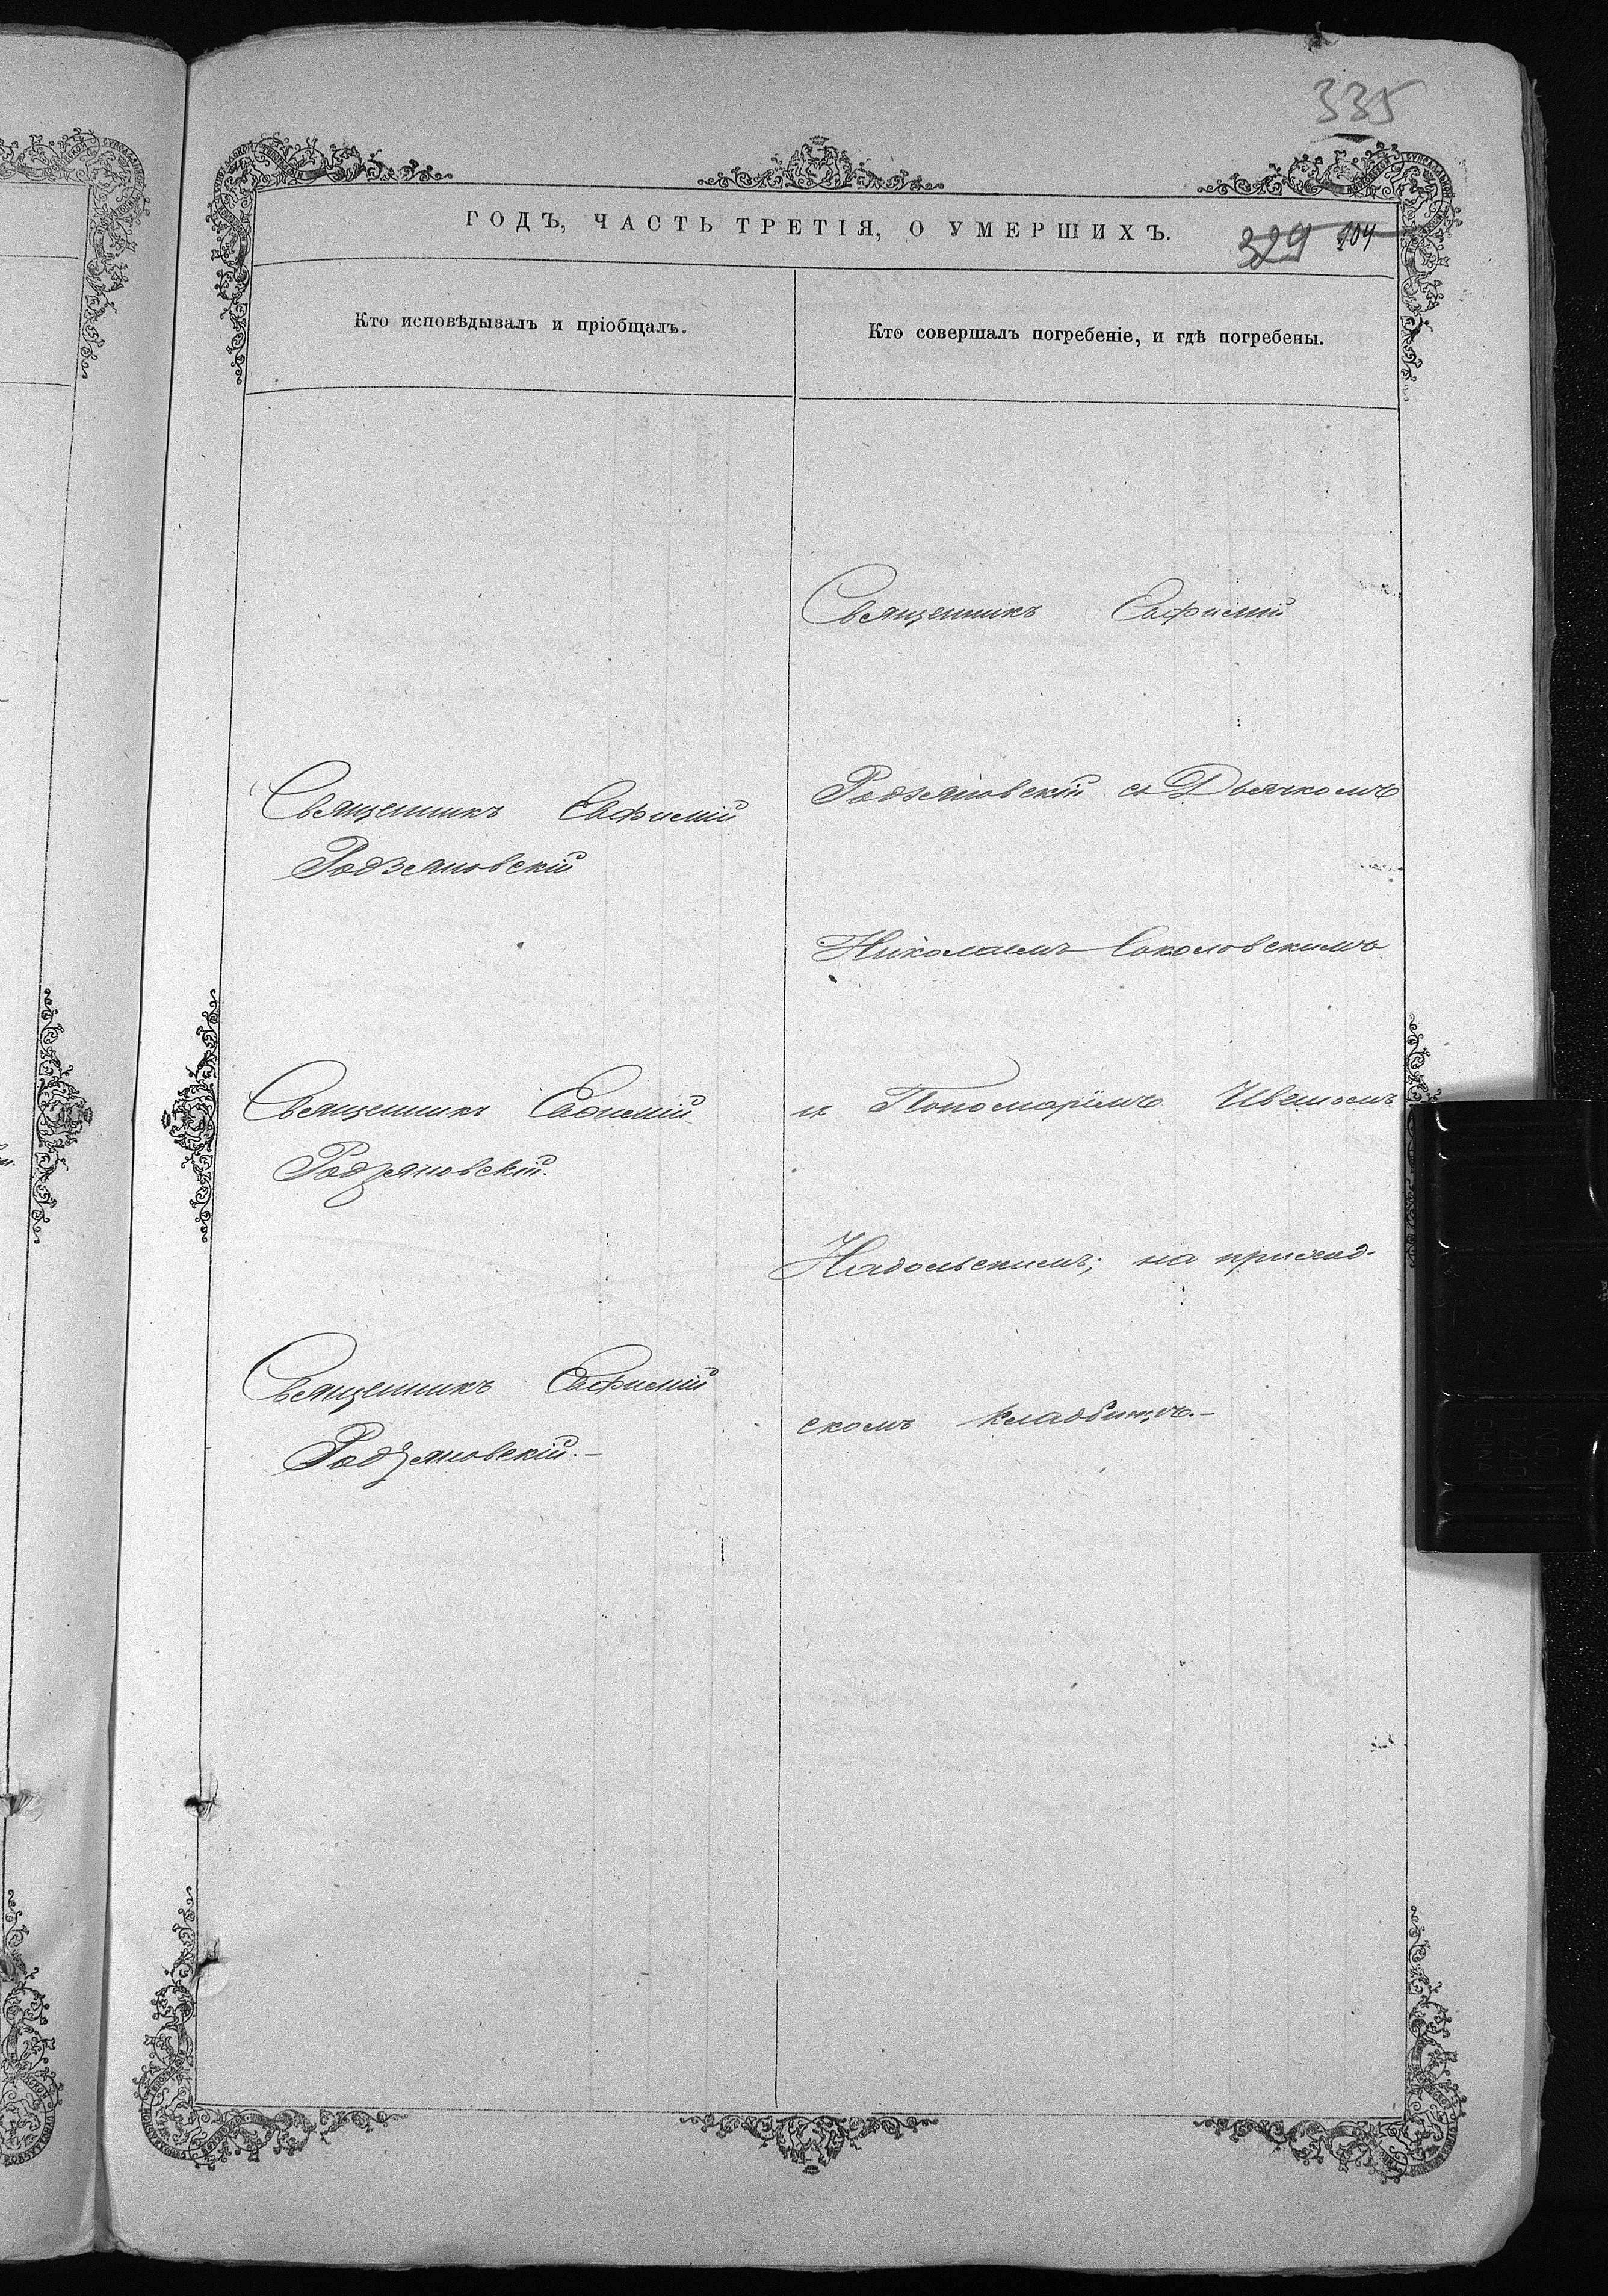 335
ГОДЪ, ЧАСТЬ ТРЕТІЯ, О УМЕРШИХЪ.
329 104
Кто исповѣдывалъ и пріобщалъ.
Кто совершалъ погребеніе, и гдѣ погребены.
Священникъ Евфимій
Родзяновскій
Священникъ Евфимій
Родзяновскій.
Священникъ Евфимій
Родзяновскій.–
Священникъ Евфимій
Родзяновскій съ Дьячкомъ
Николаемъ Соколовскимъ
и Пономарёмъ Ивеномъ
Надольскимъ; на приход-
скомъ кладбищѣ.–